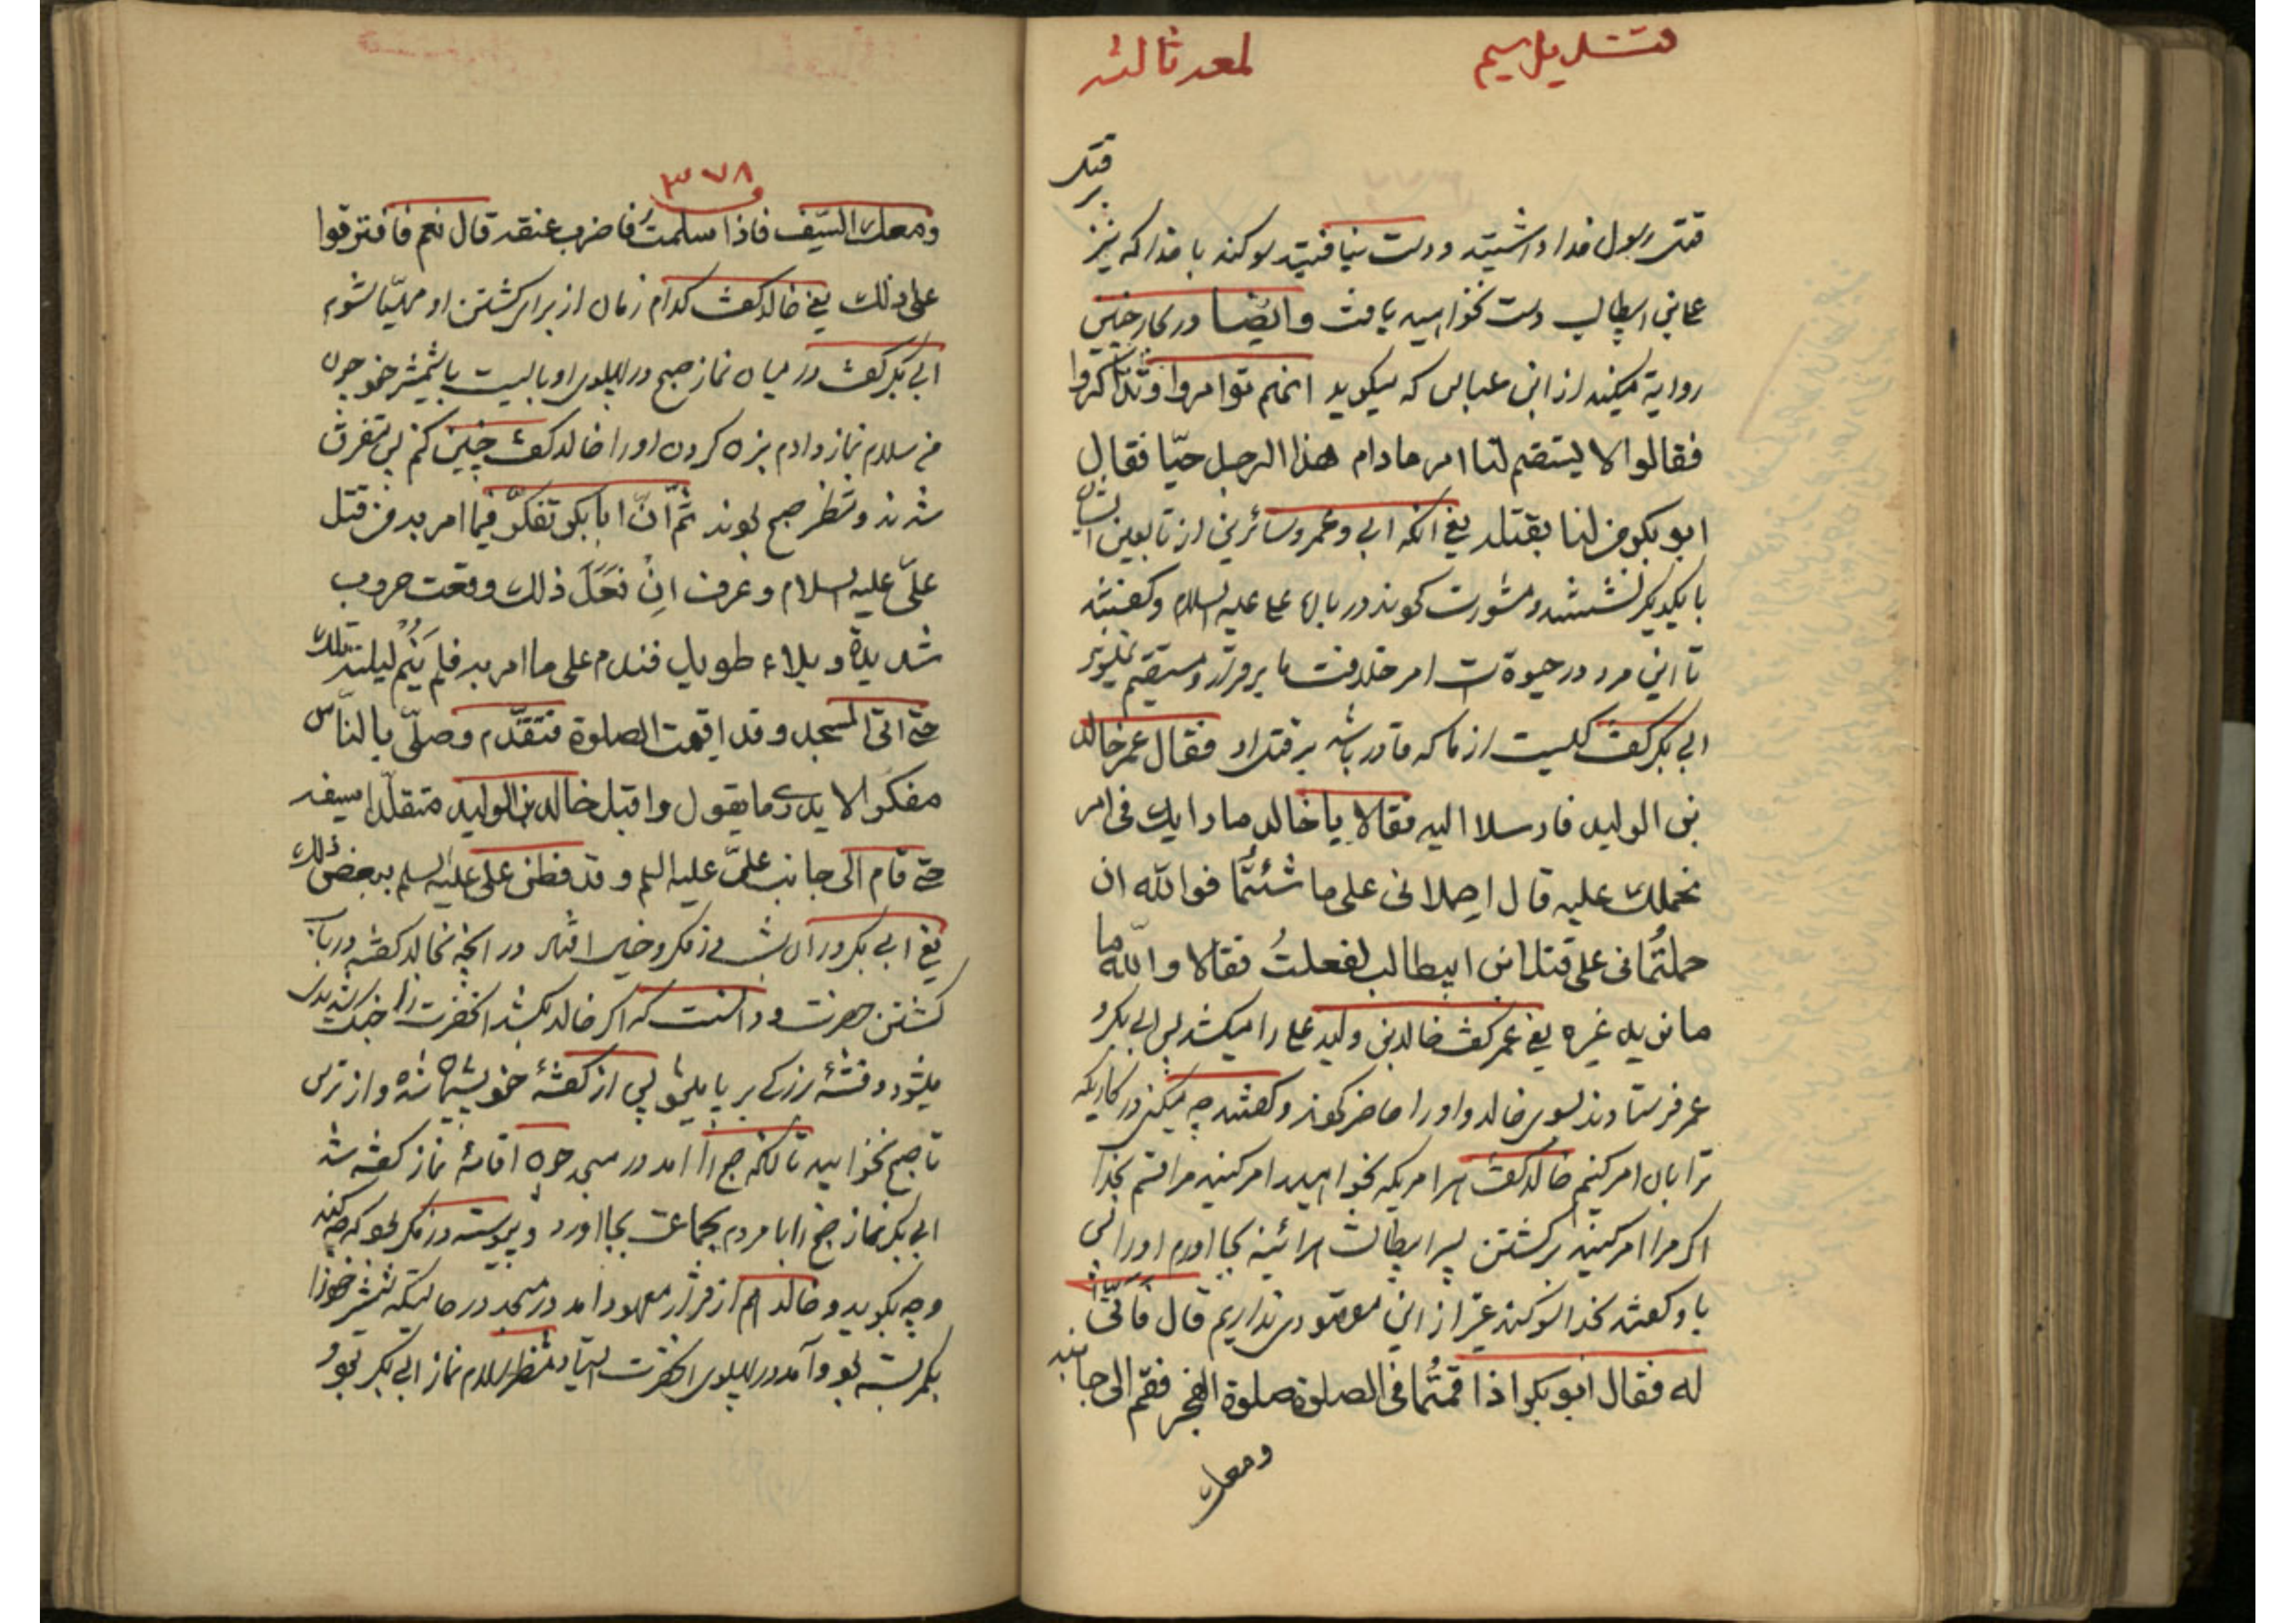 قتدیل سیم
لمعه ثالثه
قتل
قتل رسول خدا داشتید و دست نیافتید سوگند با خدا که نیز
علی بن ابیطالب دست نخواهید یافت و ایضا در بحار چنین
روایة میکند از ابن عباس که میگوید انهم توامروا وتذاکروا
فقالوا لا یستقیم لنا امر مادام هذا الرجل حیّا فقال
ابوبکر من لنا بقتله یعنی آنکه ابی و عمر و سائرین از تابعین ایشان
با یکدیگر نشستند و مشورت کردند در باره علی علیه السلام و گفتند
تا این مرد در حیوة است امر خلافت ما برقرار و مستقیم نمیشود
ابی بکر گفت کیست از ما که قادر باشد بر قتل او فقال عمر خالد
بن الولید فارسلا الیه فقالا یا خالد ما رایک فی امر
نحملک علیه قال احملانی علی ما شئتما فوالله ان
حملتمانی علی قتل ابن ابیطالب لفعلتُ فقالا والله ما
ما نرید غیره یعنی عمر گفت خالد بن ولید علی را میکشد پس ابی بکر و
عمر فرستادند بسوی خالد و اورا حاضر کردند و گفتند چه میکنی در کاریکه
ترا بان امر کنیم خالد گفت هر امریکه بخواهید امر کنید مرا قسم بخدا
اگر مرا امر کنید بر کشتن پسر ابیطالب هرآئینه بجا آورم اورا پس
با و گفتند بخدا سوگند غیر از این مقصودی نداریم قال فَاَنّیٰ
له فقال ابوبکر اذا قمتُما فی الصلوة صلوة الفجر فقم الی جانبه
ومعک
۳۷۸
ومعک السّیف فاذا سلمتُ فاضرب عنقه قال نعم فافترقوا
علی ذلک یعنی خالد گفت کدام زمان از برای کشتن او مهیّا شوم
ابی بکر گفت در میان نماز صبح در پهلوی او بایست با شمشیر خود چون
من سلام نماز دادم بزن گردن اورا خالد گفت چنین کنم پس متفرق
شدند و منتظر صبح بودند ثمّ انّ ابابکر تفکّر فیما امر به من قتل
علیّ علیه السلام و عرف اِنْ فَعَلَ ذلک وقعت حروب
شدیدة و بلاء طویل فندم علی ما امر به فلم یَنُم لیلته تلک
حتی اتی المسجد و قد اقیمت الصلوة فتقدّم وصلّی بالنّاس
مفکرا لا یدری ما یقول واقبل خالد بن الولید متقلّدا سیفه
حتی قام الی جانب علیّ علیه السلم و قد فطن علی علیه السلم ببعض ذلک
یعنی ابی بکر در آن شب در فکر و خیال افتاد در آنچه بخالد گفته در باب
کشتن حضرت و دانست که اگر خالد بکشد آنحضرت را جنگ شدیدی
میشود و فتنۀ بزرگی برپا میشود پس از گفتۀ خود پشیمان شد و از ترس
تا صبح نخوابید تا آنکه صبح را آمد در مسجد چون اقامۀ نماز گفته شد
ابی بکر نماز صبح را با مردم بجماعت بجا آورد و پیوسته در فکر بود که چه کند
و چه بگوید و خالد هم از قرار معهود آمد در مسجد در حالتیکه شمشیر خود را
بکمر بسته بود و آمد در پهلوی آنحضرت ایستاد منتظر سلام نماز ابی بکر بود